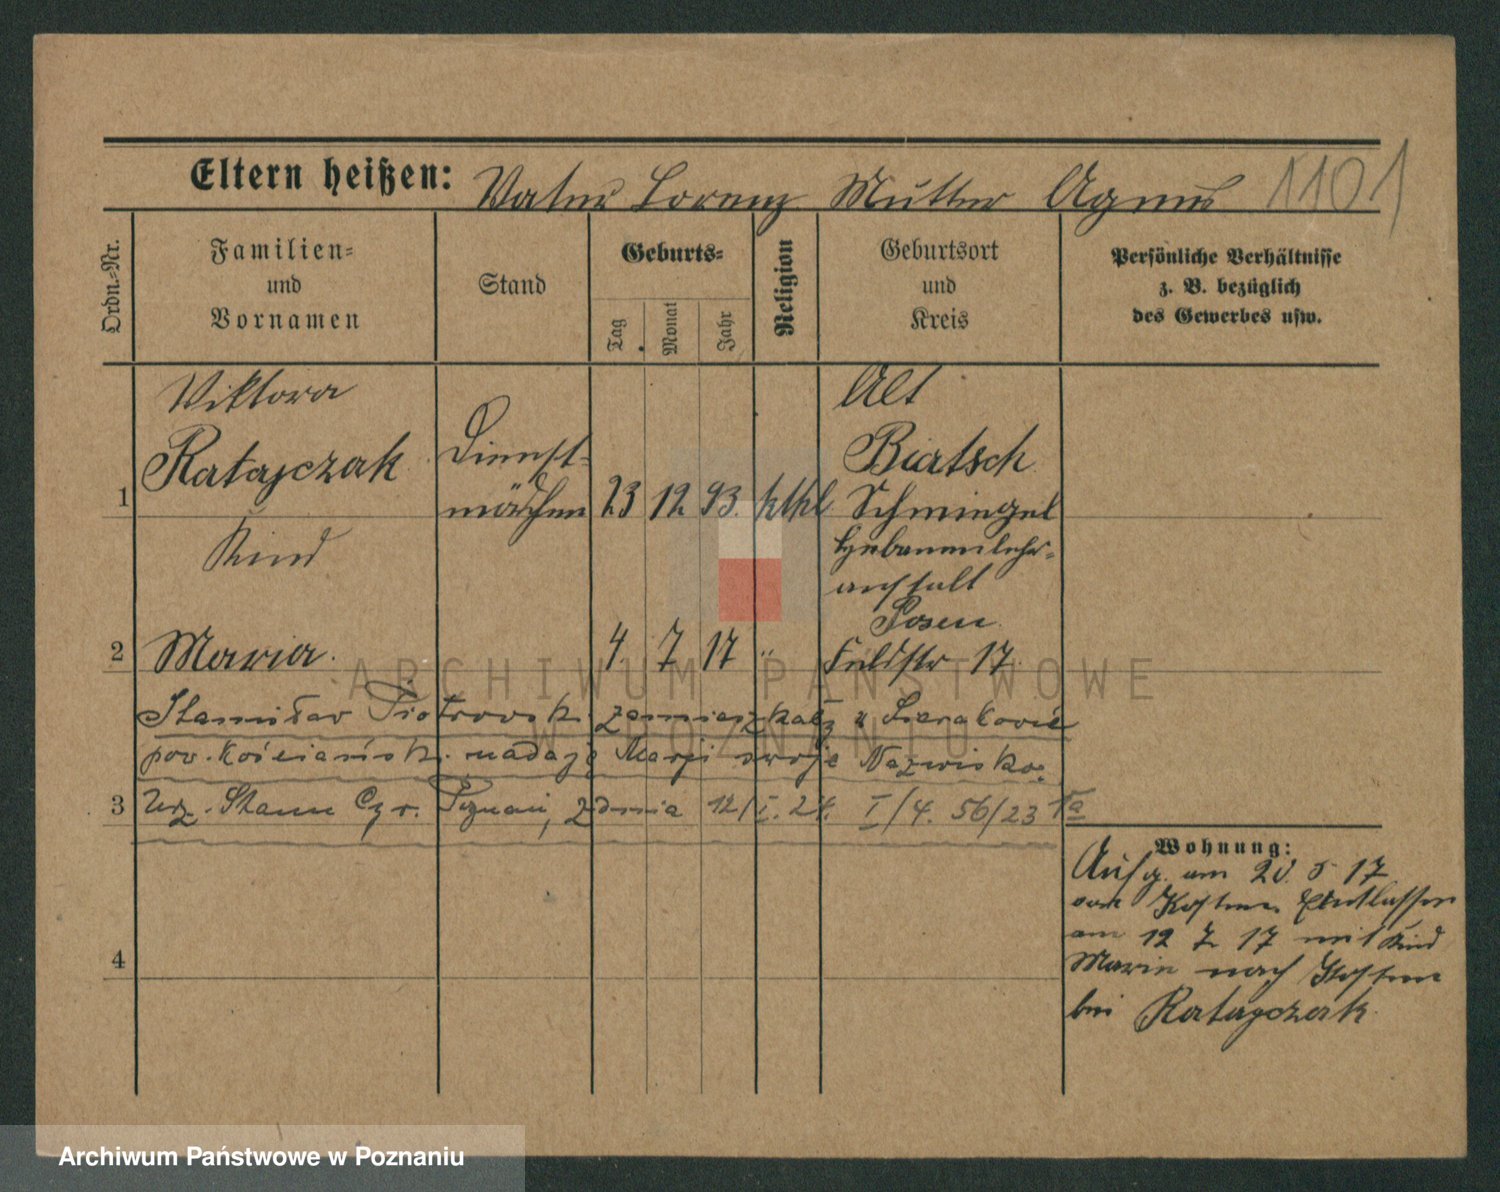 Eltern heißen: Vater Lorenz Mutter Agnes 1101
Ordn.-Nr.
Familien-
und
Vornamen
Stand
Geburts-
Tag
Monat
Jahr
Religion
Geburtsort
und
Kreis
Persönliche Verhältnisse
z. B. bezüglich
des Gewerbes usw.
Viktora
Ratajczak
1
Dienst-
mädchen
23 12 93. kthl
Alt
Biatsch
Schmiegel
Kind
2 Maria. 4 7 17 "
Hebammenlehr-
anstalt
Posen
Feldstr 17.
Stanisław Piotrowsk. zamieszkały w
pow. kościańsk. nadaje Marji swoje Nazwisko.
3 Urz. Stanu Cyw. Poznań, z dnia 12/I. 24. I/4. 56/23
4
Wohnung:
Aufg. am 20. 5 17
von Kosten Entlassen
am 12 7 17 mit Kind
Marie nach Kosten
bei Ratajczak
ARCHIWUM PAŃSTWOWE
W POZNANIU
Archiwum Państwowe w Poznaniu